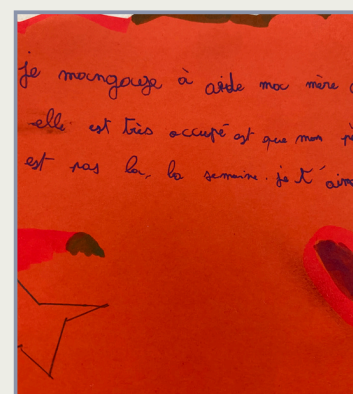 je mangauge à aide ma mère
elle est très accupé est que mon
est pas la, la semaine. je t'aime